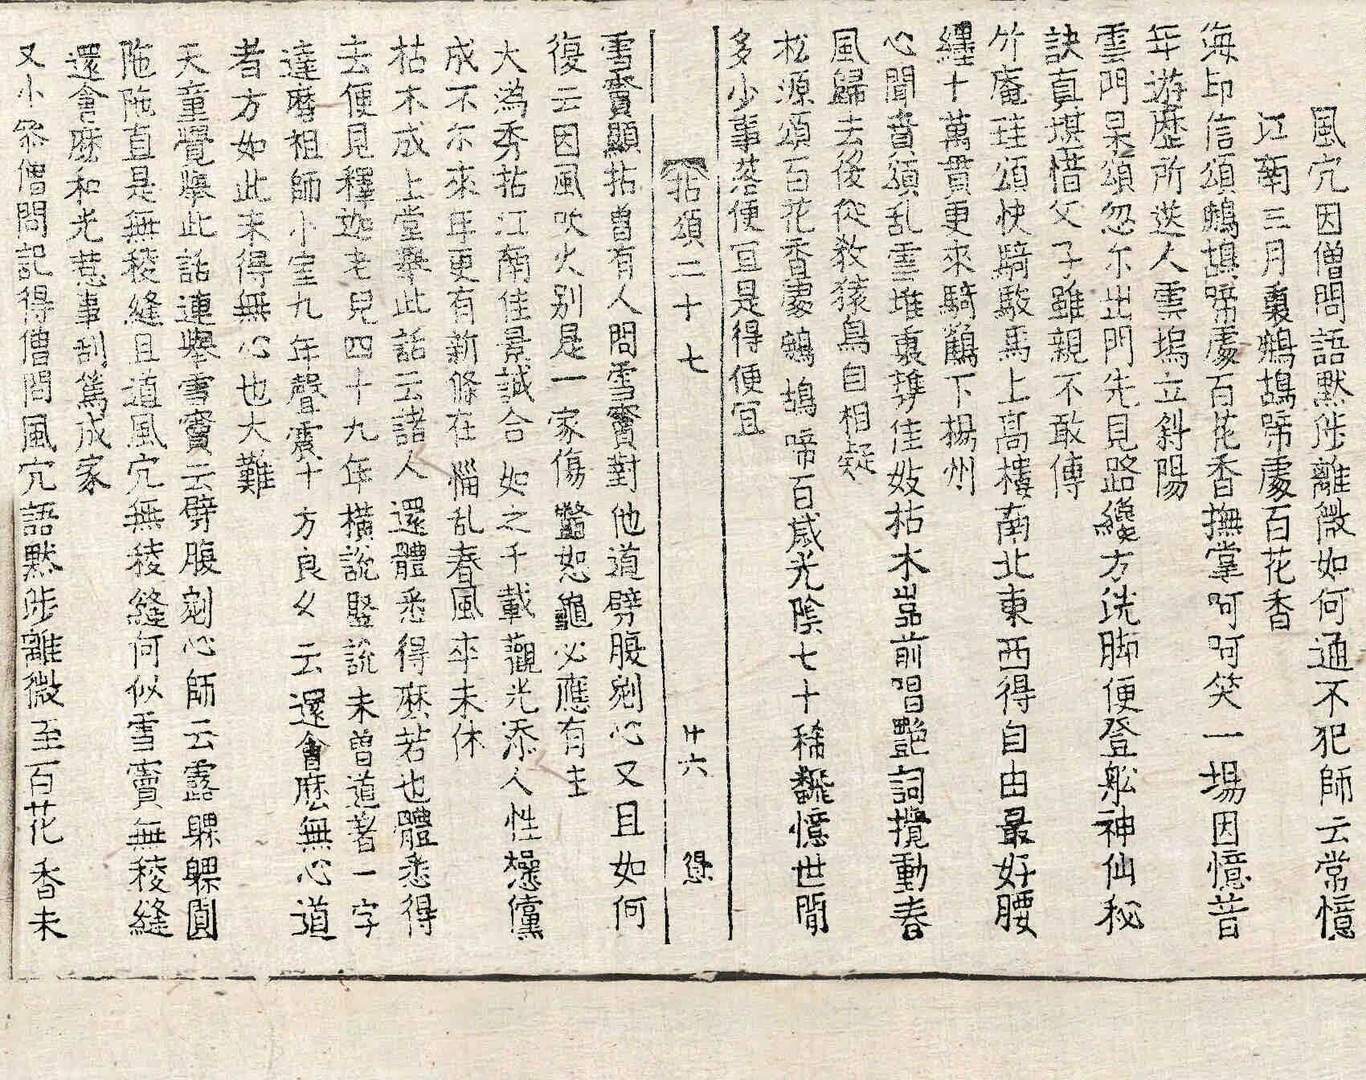 風穴因僧問語默涉離微如何通不犯師云常憶
江南三月裏鷓鴣啼處百花香
海印信頌鷓鴣啼處百花香撫掌呵呵笑一場因憶昔
年游歷所送人雲塢立斜陽
雲門杲頌忽尔出門先見路纔方洗脚便登舩神仙秘
訣真堪惜父子雖親不敢傳
竹庵珪頌快騎駿馬上高樓南北東西得自由最好腰
纏十萬貫更來騎鶴下揚州
心聞賁頌乱雲堆裏擁佳妓枯木嵓前唱艷詞攪動春
風歸去後從教猿鳥自相疑
松源頌百花香處鷓鴣啼百歲光陰七十稀飜憶世間
多少事落便冝是得便冝
拈頌二十七 廿六
雪竇顯拈曽有人問雪竇對他道劈腹剜心又且如何
復云因風吹火别是一家傷鼈恕龜必應有主
大潙秀拈江南佳景誠合如之千載觀光添人性燥儻
成不尔來年更有新條在惱乱春風卒未休
枯木成上堂舉此話云諸人還體悉得麽若也體悉得
去便見釋迦老兒四十九年橫說竪說未曽道著一字
達磨祖師小室九年聲震十方良久云還會麽無心道
者方如此未得無心也大難
天童覺舉此話連舉雪竇云劈腹剜心師云露躶躶圓
陁陁直是無稜縫且道風穴無稜縫何似雪竇無稜縫
還會麽和光惹事刮篤成家
又小叅僧問記得僧問風穴語默涉離微至百花香未